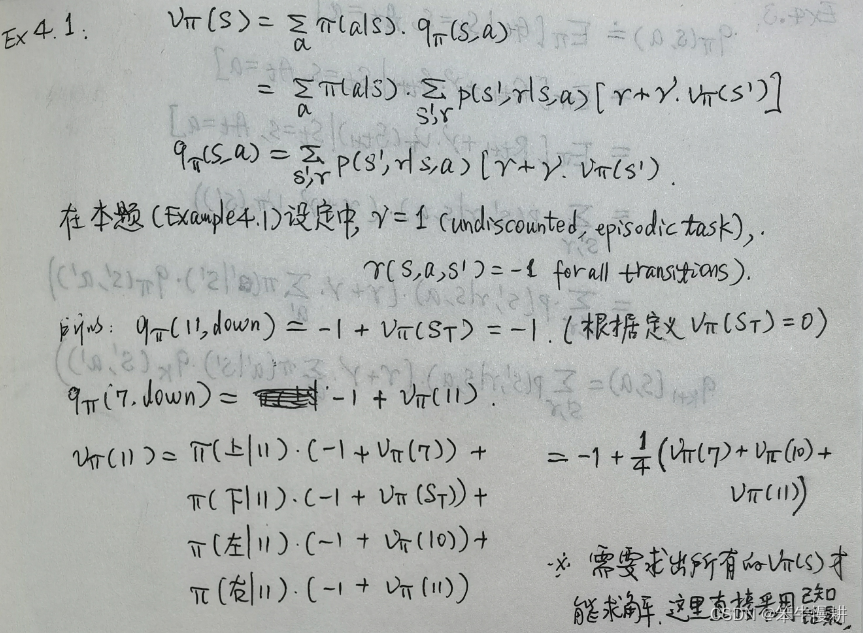 Ex 4.1:
vπ(s) = Σₐ π(a|s)· qπ(s,a)
= Σₐ π(a|s)· Σₛ',ᵣ p(s',r|s,a) [r+γ·vπ(s')]
qπ(s,a) = Σₛ',ᵣ p(s',r|s,a) [r+γ·vπ(s').
在本题(Example4.1)设定中, γ=1 (undiscounted, episodic task),.
r(s,a,s') = -1 for all transitions).
qπ(11,down) = -1 + vπ(S_T) = -1. (根据定义 vπ(S_T) = 0)
qπ(7,down) = -1 + vπ(11).
vπ(11) = π(上|11)·(-1+vπ(7)) +
π(下|11)·(-1+vπ(S_T)) +
π(左|11)·(-1+vπ(10)) +
π(右|11)·(-1+vπ(11))
= -1 + 1/4 (vπ(7)+vπ(10)+
vπ(11))
※ 需要求出所有的vπ(s)才
能求解. 这里直接采用已知
结果.
CSDN @笨牛慢耕